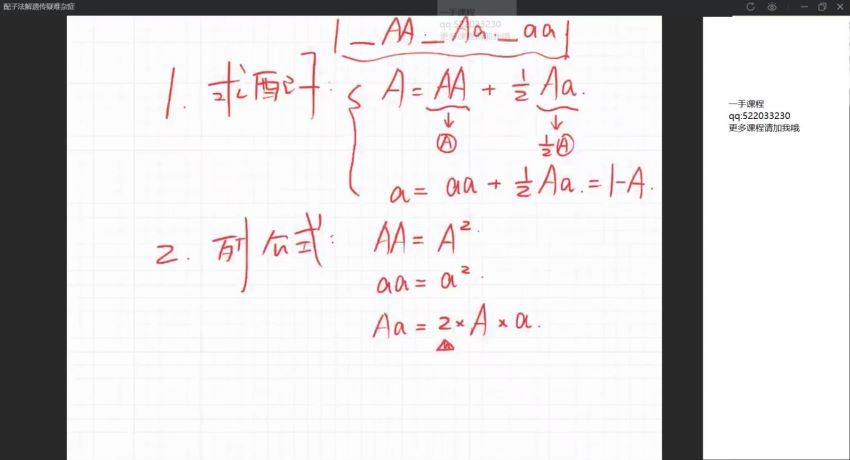 配子法解遗传疑难杂症
一手课程
qq:522033230
更多课程请加我哦
_AA_Aa_aa
1. 求配子: A = AA + 1/2 Aa.
↓ ↓
Ⓐ 1/2 Ⓐ
a = aa + 1/2 Aa. = 1-A.
2. 列公式: AA = A².
aa = a².
Aa = 2 × A × a.
一手课程
qq:522033230
更多课程请加我哦